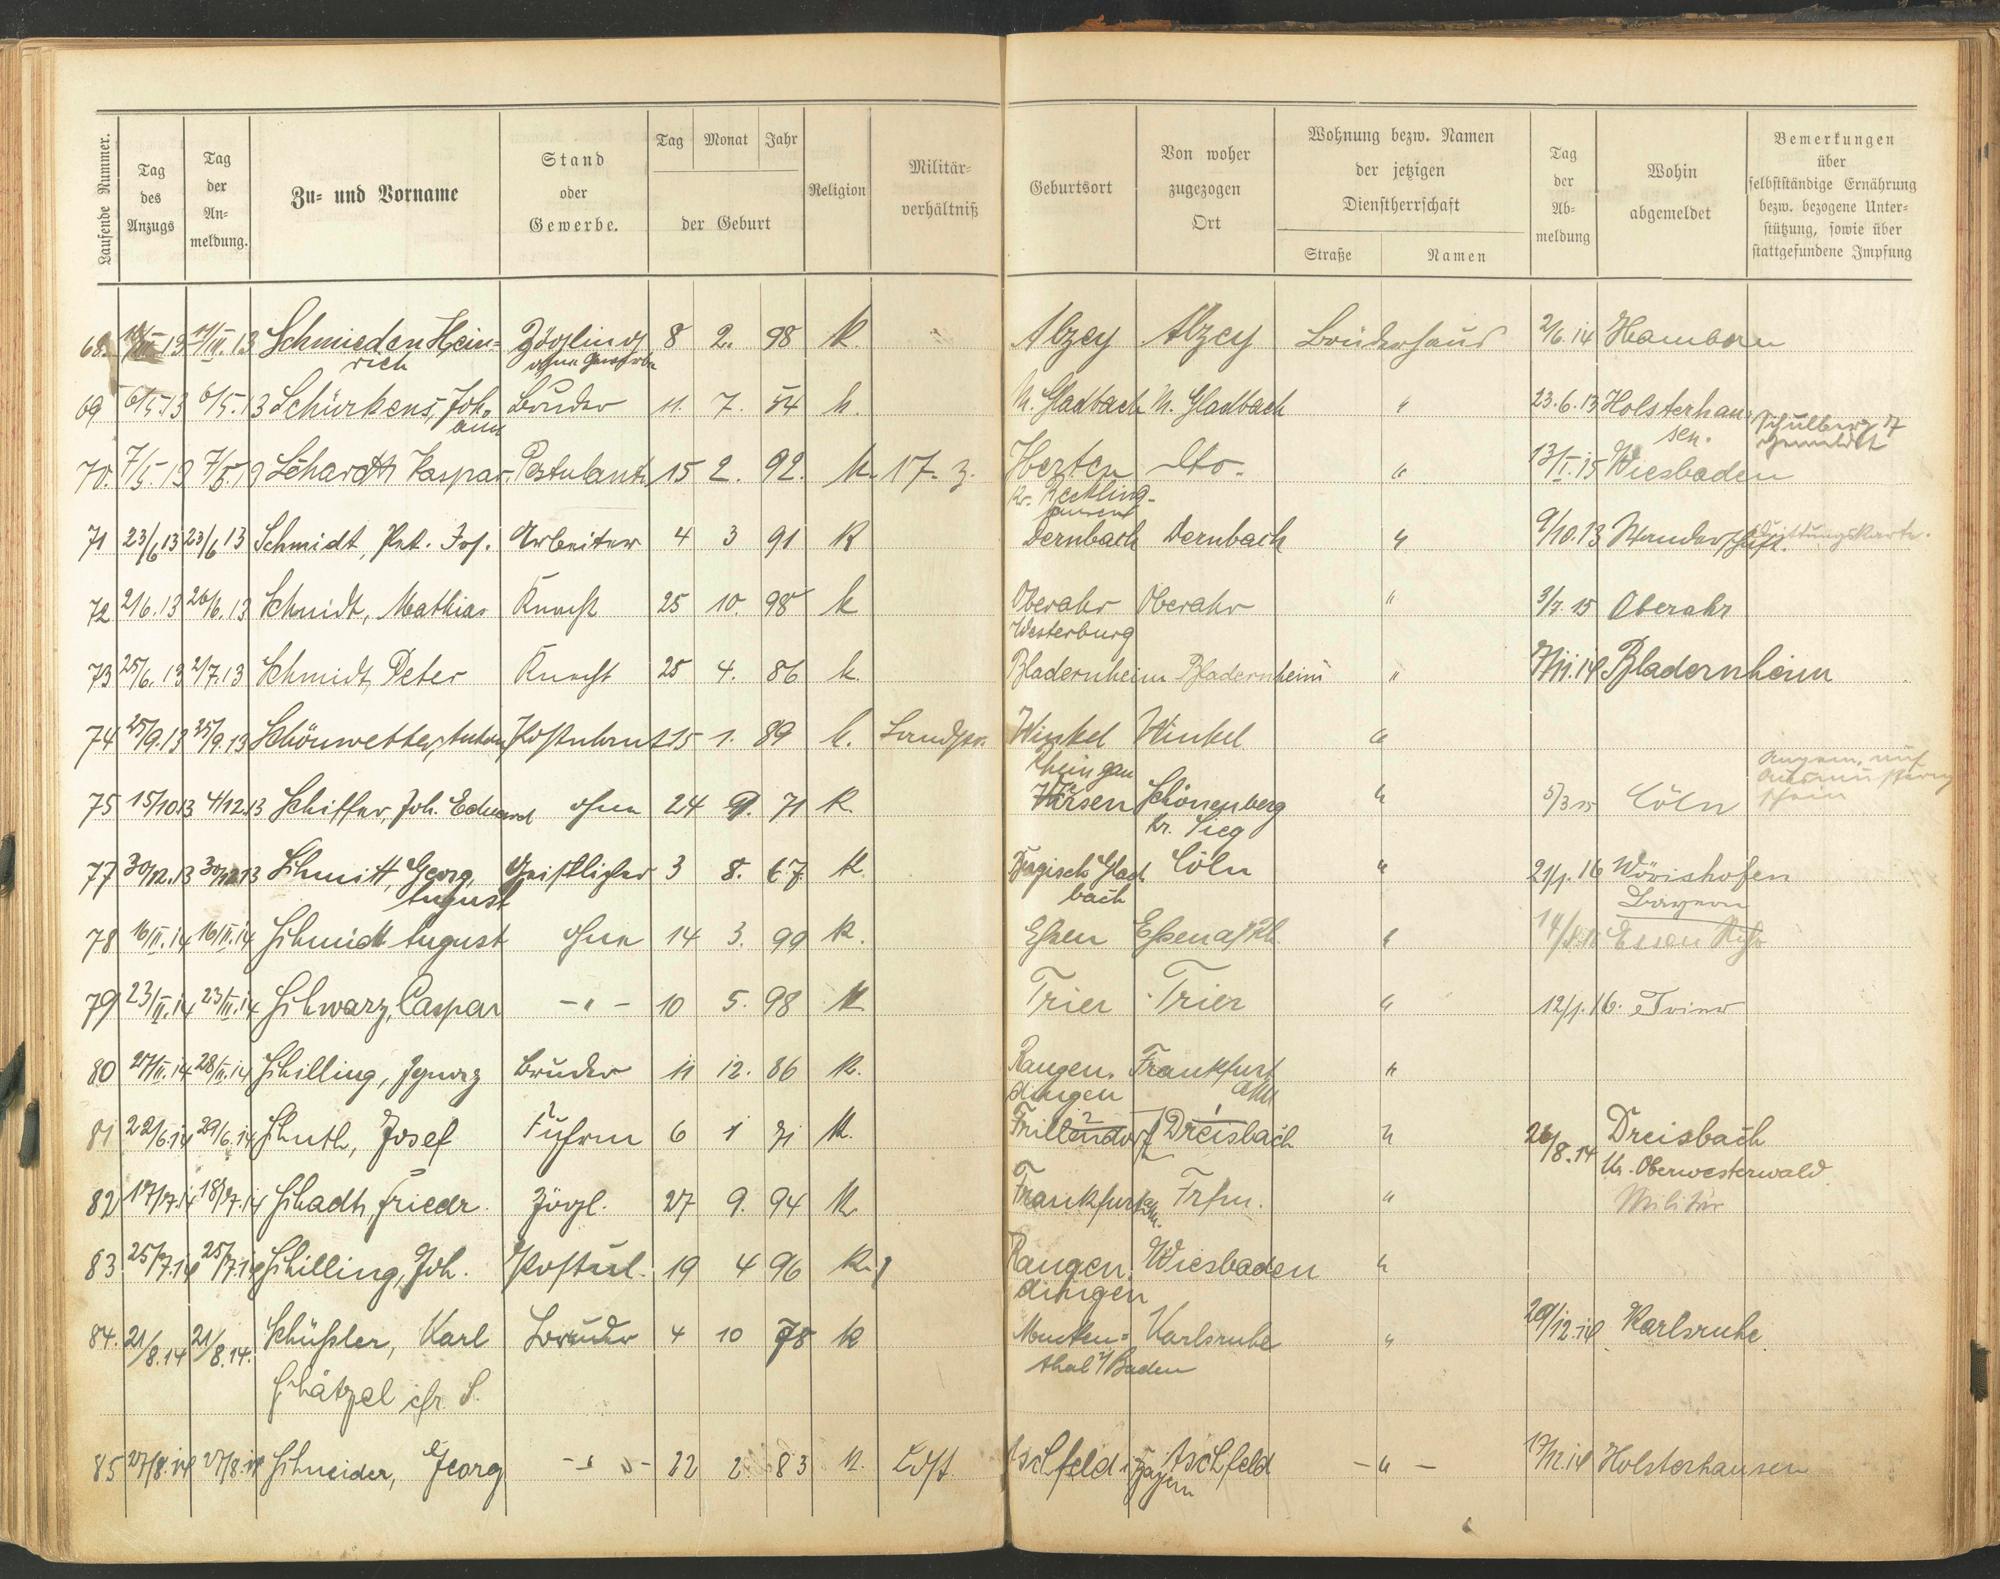 Laufende Nummer.
Tag des Anzugs
Tag der An- meldung.
Zu- und Vorname
Stand oder Gewerbe.
Tag Monat Jahr
der Geburt
Religion
Militär- verhältniß
Geburtsort
Von woher zugezogen Ort
Wohnung bezw. Namen der jetzigen Dienstherrschaft
Straße Namen
Tag der Ab- meldung
Wohin abgemeldet
Bemerkungen über selbstständige Ernährung bezw. bezogene Unter- stützung, sowie über stattgefundene Impfung
68. 13 13 Schmieden Hein- Zögling 8 2. 98 k. Alzey Alzey Brüderhaus 2/6.14 Hamborn
rich ohne Gewerbe
69 6/5.13 6/5.13 Schürkens, Joh- Bruder 11. 7. 54 k. M. Gladbach M. Gladbach " 23.6.13 Holsterhau-
ann sen. Schulberg 7 gemeldet
70. 7/5.13 7/5.13 Kaspar Postulant 15 2. 92. k. Herten dto. " 13/I.15 Wiesbaden
Kr. Reckling-
hausen
71 23/6 13 23/6 13 Schmidt, Pet. Jos. Arbeiter 4 3 91 k Dernbach Dernbach " 9/10.13 Wanderschaft. Quittungskarte.
72 2/6.13 26/6.13 Schmidt, Mathias Knecht 25 10. 98 k Oberahr Oberahr " 3/7 15 Oberahr
Westerburg
73 25/6.13 2/7.13 Schmidt Peter Knecht 25 4. 86 k. Bladernheim Bladernheim " 14 Bladernheim
74 25/9.13 25/9.13 Schönwetter, Anton Postulant 15 1. 89 k. Winkel Winkel "
Rheingau
75 15/10.13 4/12.13 Schiffer, Joh. Eduard ohne 24 9. 71 k. Schönenberg " 5/3 15 Cöln
Kr. Sieg
77 30/12.13 30/12 13 Schmitt, Georg, Geistlicher 3 8. 67. k. Bergisch Glad Cöln " 21/1.16 Wörishofen
August bach Bayern
78 16/II.14 16/II.14 Schmidt August ohne 14 3. 99 k. Essen Essen a/Rh. " Essen Ruhr
79 23/II.14 23/II.14 Schwarz, Caspar - " - 10 5. 98 k Trier Trier " 12/1.16. Trier
80 27/II.14 28/II.14 Schilling, Ignaz Bruder 11 12. 86 k. Rangen- Frankfurt "
dingen a/M
81 22/6.14 29/6.14 Schuth, Josef Fuhrm 6 1 71 k. Frillendorf Dreisbach " 26/8.14 Dreisbach
Kr. Oberwesterwald.
82 17/7.14 18/7.14 Schadt, Friedr. Zögl. 27 9. 94 k Frankfurt a/M. Frfm. " Militär
83 25/7.14 25/7.14 Schilling, Joh. Postul. 19 4 96 k. Rangen- Wiesbaden "
dingen
84. 21/8.14 21/8.14. Schüßler, Karl Bruder 4 10 78 k Karlsruhe " 29/12.14 Karlsruhe
thal i/Baden
Schätzel cfr. S.
85 27/8.14 27/8.14 Schneider, Georg - " - 22 2 83 k. Ldst. Aschfeld i. Aschfeld - " - 14 Holsterhausen
Bayern